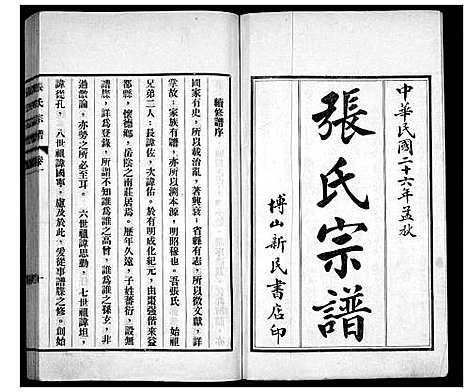 中華民國二十六年孟秋
張氏宗譜
博山新民書店印
續修譜序
國家有史，所以載治亂，著興衰，省縣有志，所以徵文獻，詳
掌故：家族有譜，亦所以溯本源，明昭穆也。吾張氏 始祖
兄弟二人：長諱佐，次諱佑。於有明成化紀元，由棗強偕來益
都縣，懷德鄉，岳陰之南莊居焉。歷年久遠，子姓蕃衍，設無
譜牒，詳為登錄，所謂不知誰為誰之高曾，誰為誰之孫玄，非
過激論，亦勢之所必至耳。 六世祖諱思勤，七世祖諱坦，
諱從孔， 八世祖諱國寧，慮及於此，爰從事譜牒之修。創始